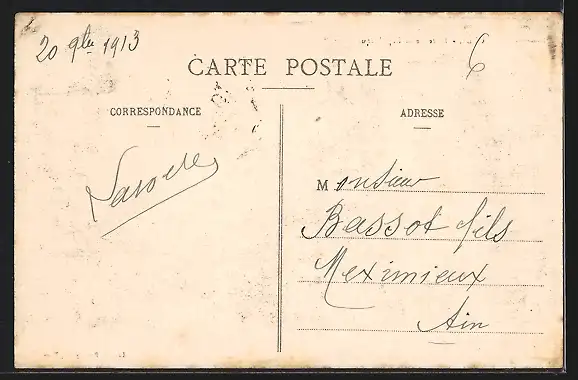 20 9bre 1913
6
CARTE POSTALE
CORRESPONDANCE
ADRESSE
Monsieur
Bassot fils
Meximieux
Ain